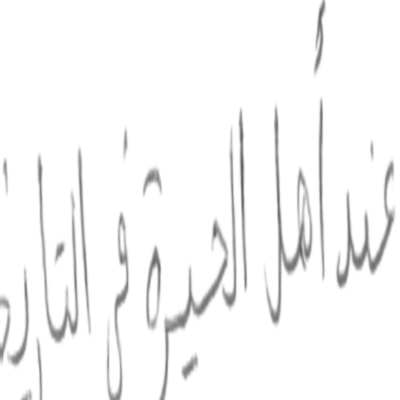 عند أهل الحيرة في التاريخ